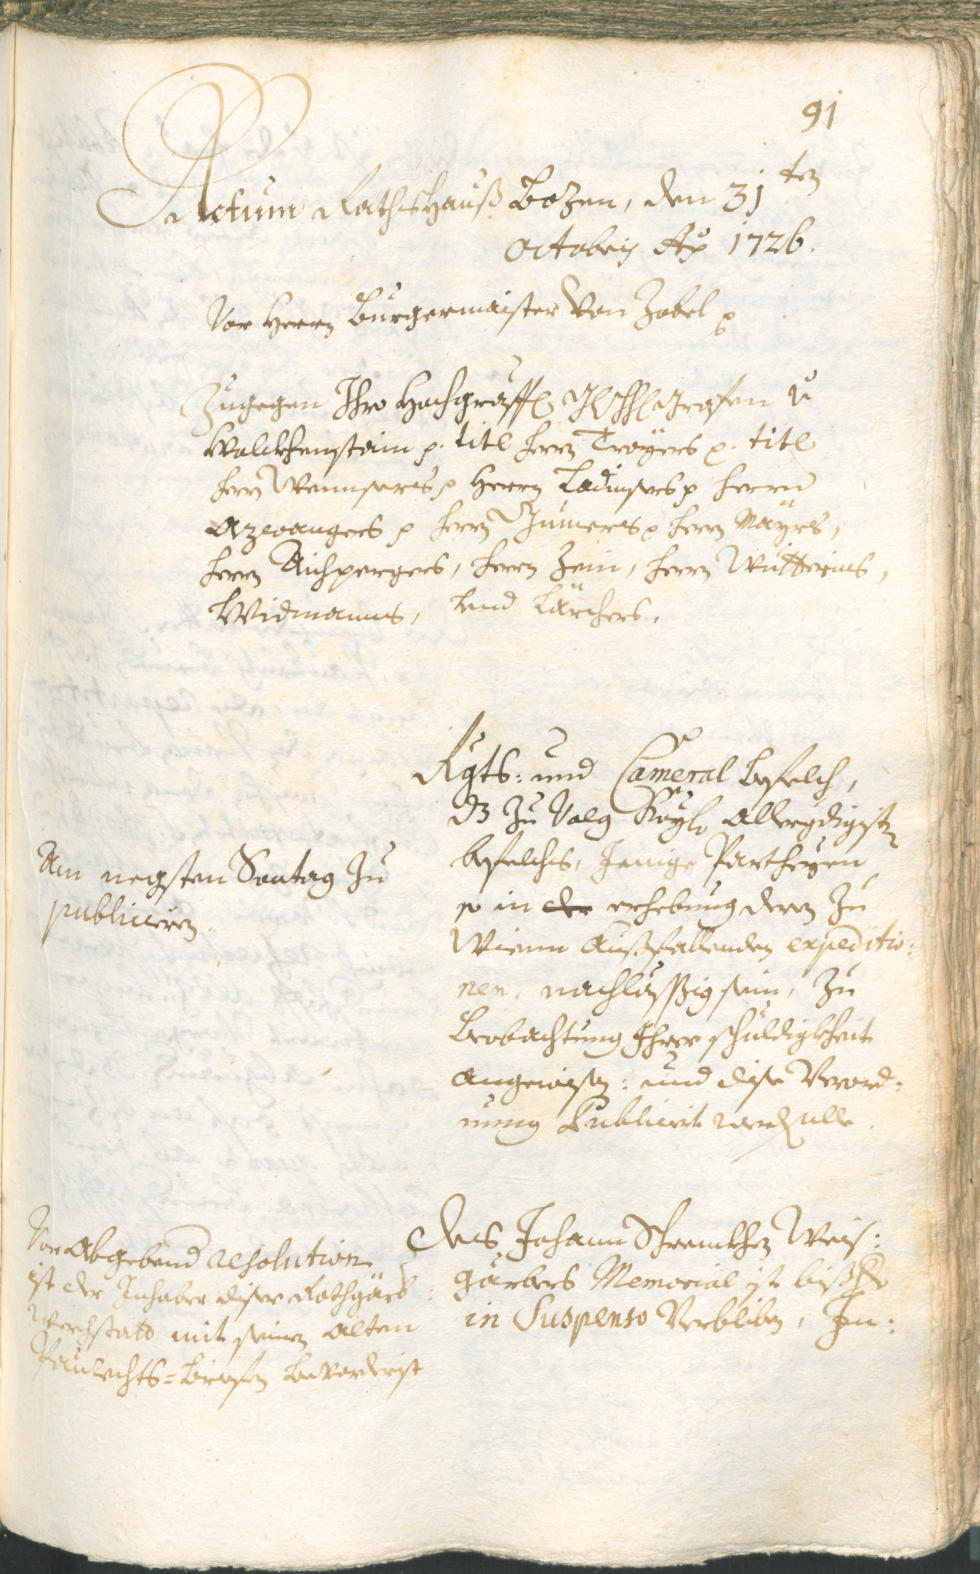 91
Actum Rathshauß Bozen, den 31ten
octobris Ao 1726.
Vor Herrn Burgermaister Von Zobel p
Zugegen Ihro Hochgräffl. Grafen v
Wolckhenstain p. titl herrn Troyers p. titl
herrn Wenser p Herrn Ladinsers p herrn
Azwangers p herrn p herrn Mayrs,
herrn Aichpergers, herrn Zein, herrn
Widmanns, und Lärchers.
Rgts: und Cameral befelch,
dz zu Volg Kayl. allergdigsten
befelchs, jenige Partheyen
so in der erhebung deren zu
Wienn Außfallenden expeditio:
nen, nachlässig sein, zu
beobachtung Ihrer schuldigkheit
angewisen: und dise Verord:
nung Publicirt werden solle.
Am negsten Sontag zu
publiciern.
Des Johann Weis:
gärbers Memorial ist bißher
in Suspenso Verbliben, In:
Vor abgebend resolution
ist der Inhaber diser Rothgärb:
Werchstatt mit seinen alten
Paurechts=briefen bevorderist